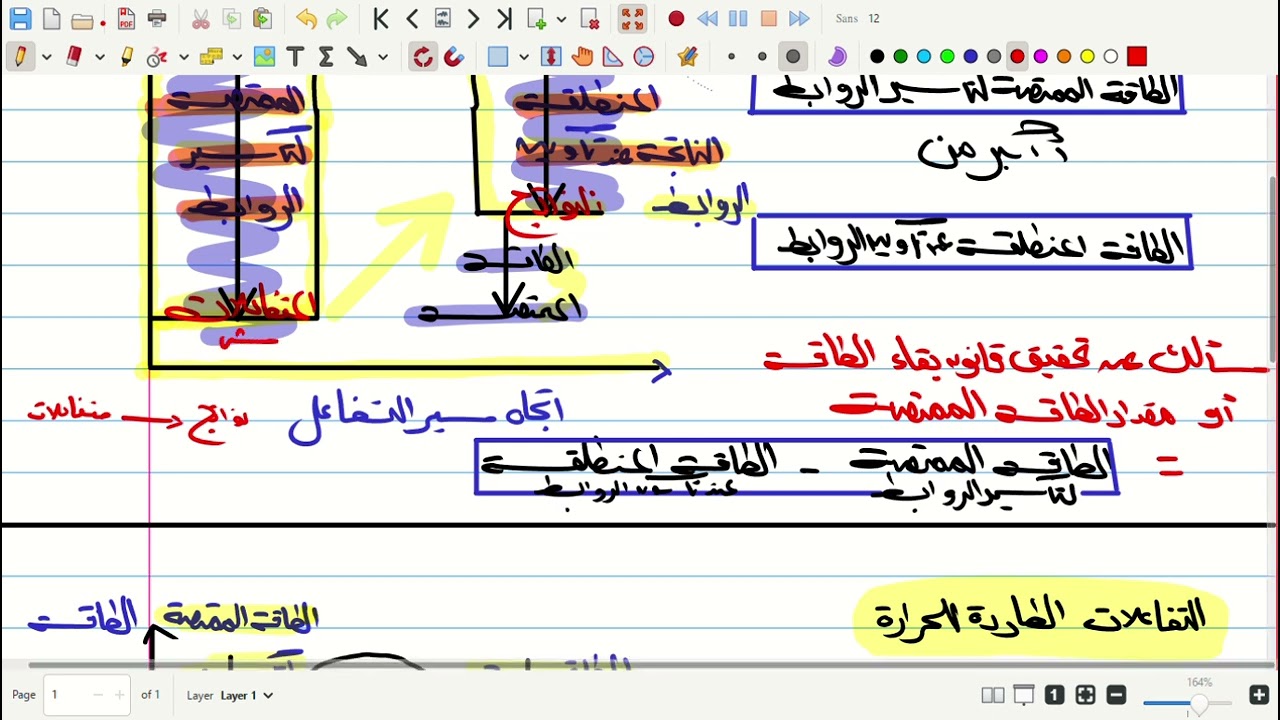 Sans 12
الطاقة الممتصة لتكسير الروابط
أكبر من
الطاقة المنطلقة عند تكوين الروابط
الممتصة
لتكسير
الروابط
المتفاعلات
المنطلقة
الناتجة عند تكوين
الروابط
النواتج
الطاقة
الممتصة
كذلك عند تحقيق قانون بقاء الطاقة
أو مقدار الطاقة الممتصة
= الطاقة الممتصة لتكسير الروابط - الطاقة المنطلقة عند تكوين الروابط
اتجاه سير التفاعل
متفاعلات → نواتج
التفاعلات الطاردة للحرارة
الطاقة
الطاقة الممتصة
Page 1 of 1 Layer Layer 1
164%